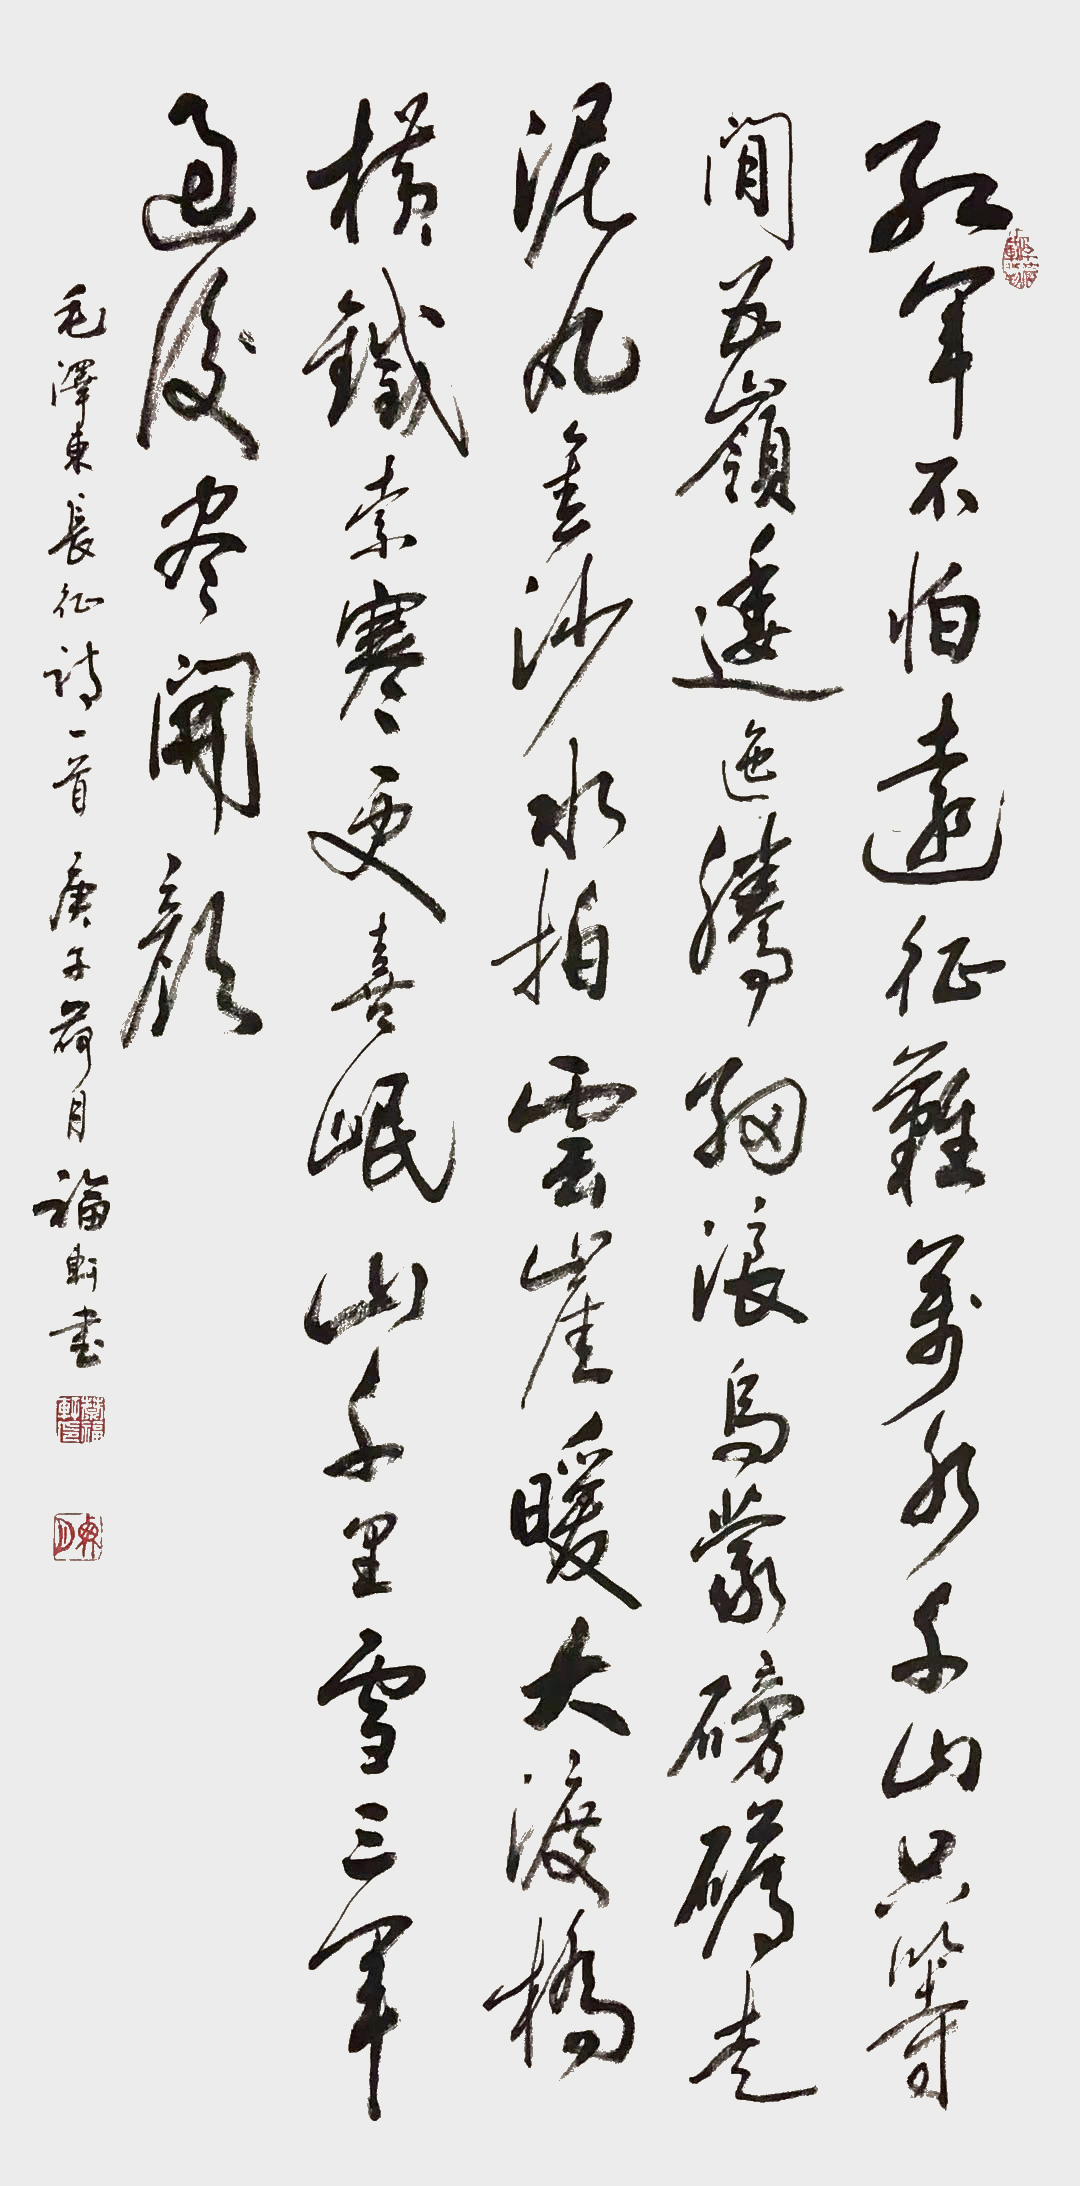 紅軍不怕遠征難萬水千山只等
閒五嶺逶迤騰細浪烏蒙磅礴走
泥丸金沙水拍雲崖暖大渡橋
橫鐵索寒更喜岷山千里雪三軍
過後尽開顏
毛澤東長征詩一首 庚子荷月 福軒书